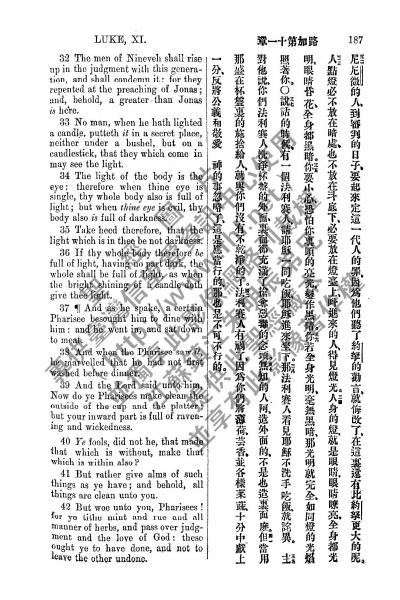 LUKE, XI.
路加第十一章
187
32 The men of Nineveh shall rise
up in the judgment with this genera-
tion, and shall condemn it: for they
repented at the preaching of Jonas;
and, behold, a greater than Jonas
is here.
33 No man, when he hath lighted
a candle, putteth it in a secret place,
neither under a bushel, but on a
candlestick, that they which come in
may see the light.
34 The light of the body is the
eye: therefore when thine eye is
single, thy whole body also is full of
light; but when thine eye is evil, thy
body also is full of darkness.
35 Take heed therefore, that the
light which is in thee be not darkness.
36 If thy whole body therefore be
full of light, having no part dark, the
whole shall be full of light, as when
the bright shining of a candle doth
give thee light.
37 ¶ And as he spake, a certain
Pharisee besought him to dine with
him: and he went in, and sat down
to meat.
38 And when the Pharisee saw it,
he marvelled that he had not first
washed before dinner.
39 And the Lord said unto him,
Now do ye Pharisees make clean the
outside of the cup and the platter;
but your inward part is full of raven-
ing and wickedness.
40 Ye fools, did not he, that made
that which is without, make that
which is within also?
41 But rather give alms of such
things as ye have; and behold, all
things are clean unto you.
42 But woe unto you, Pharisees!
for ye tithe mint and rue and all
manner of herbs, and pass over judg-
ment and the love of God: these
ought ye to have done, and not to
leave the other undone.
尼尼微的人、到審判的日子、要起來定這一代人的罪、因爲他們聽了約拏的勸言、就悔改了、在這裏還有比約拏更大的呢。
人點燈、必不放在暗處、也不放在斗底下、必要放在燈臺上、叫進來的人得見燈光。人身的燈、就是眼睛、眼睛瞭亮、全身都光
明、眼睛昏花、全身都黑暗。你要小心、恐怕你裏頭的亮光、變作黑暗。你若全身光明、毫無黑暗、那光明就完全、如同燈的光燄
照著你。○說話的時候、有一個法利賽人、請耶穌一同吃飯、耶穌進來坐下。那法利賽人看見耶穌不洗手吃飯、就詫異。主
對他說、你們法利賽人、洗淨杯盤的外面、裏面都充滿了
無知的人阿、造外面的、不是也造裏面麼。但當用
那盛在杯盤裏的施捨給人、就與你們沒有不潔淨的了。法利賽人有禍了、因爲你們將薄荷芸香、並各樣菜蔬、十分中獻上
一分、反將公義和敬愛 神的事忽略了、這是應當行的、那也是不可不行的。